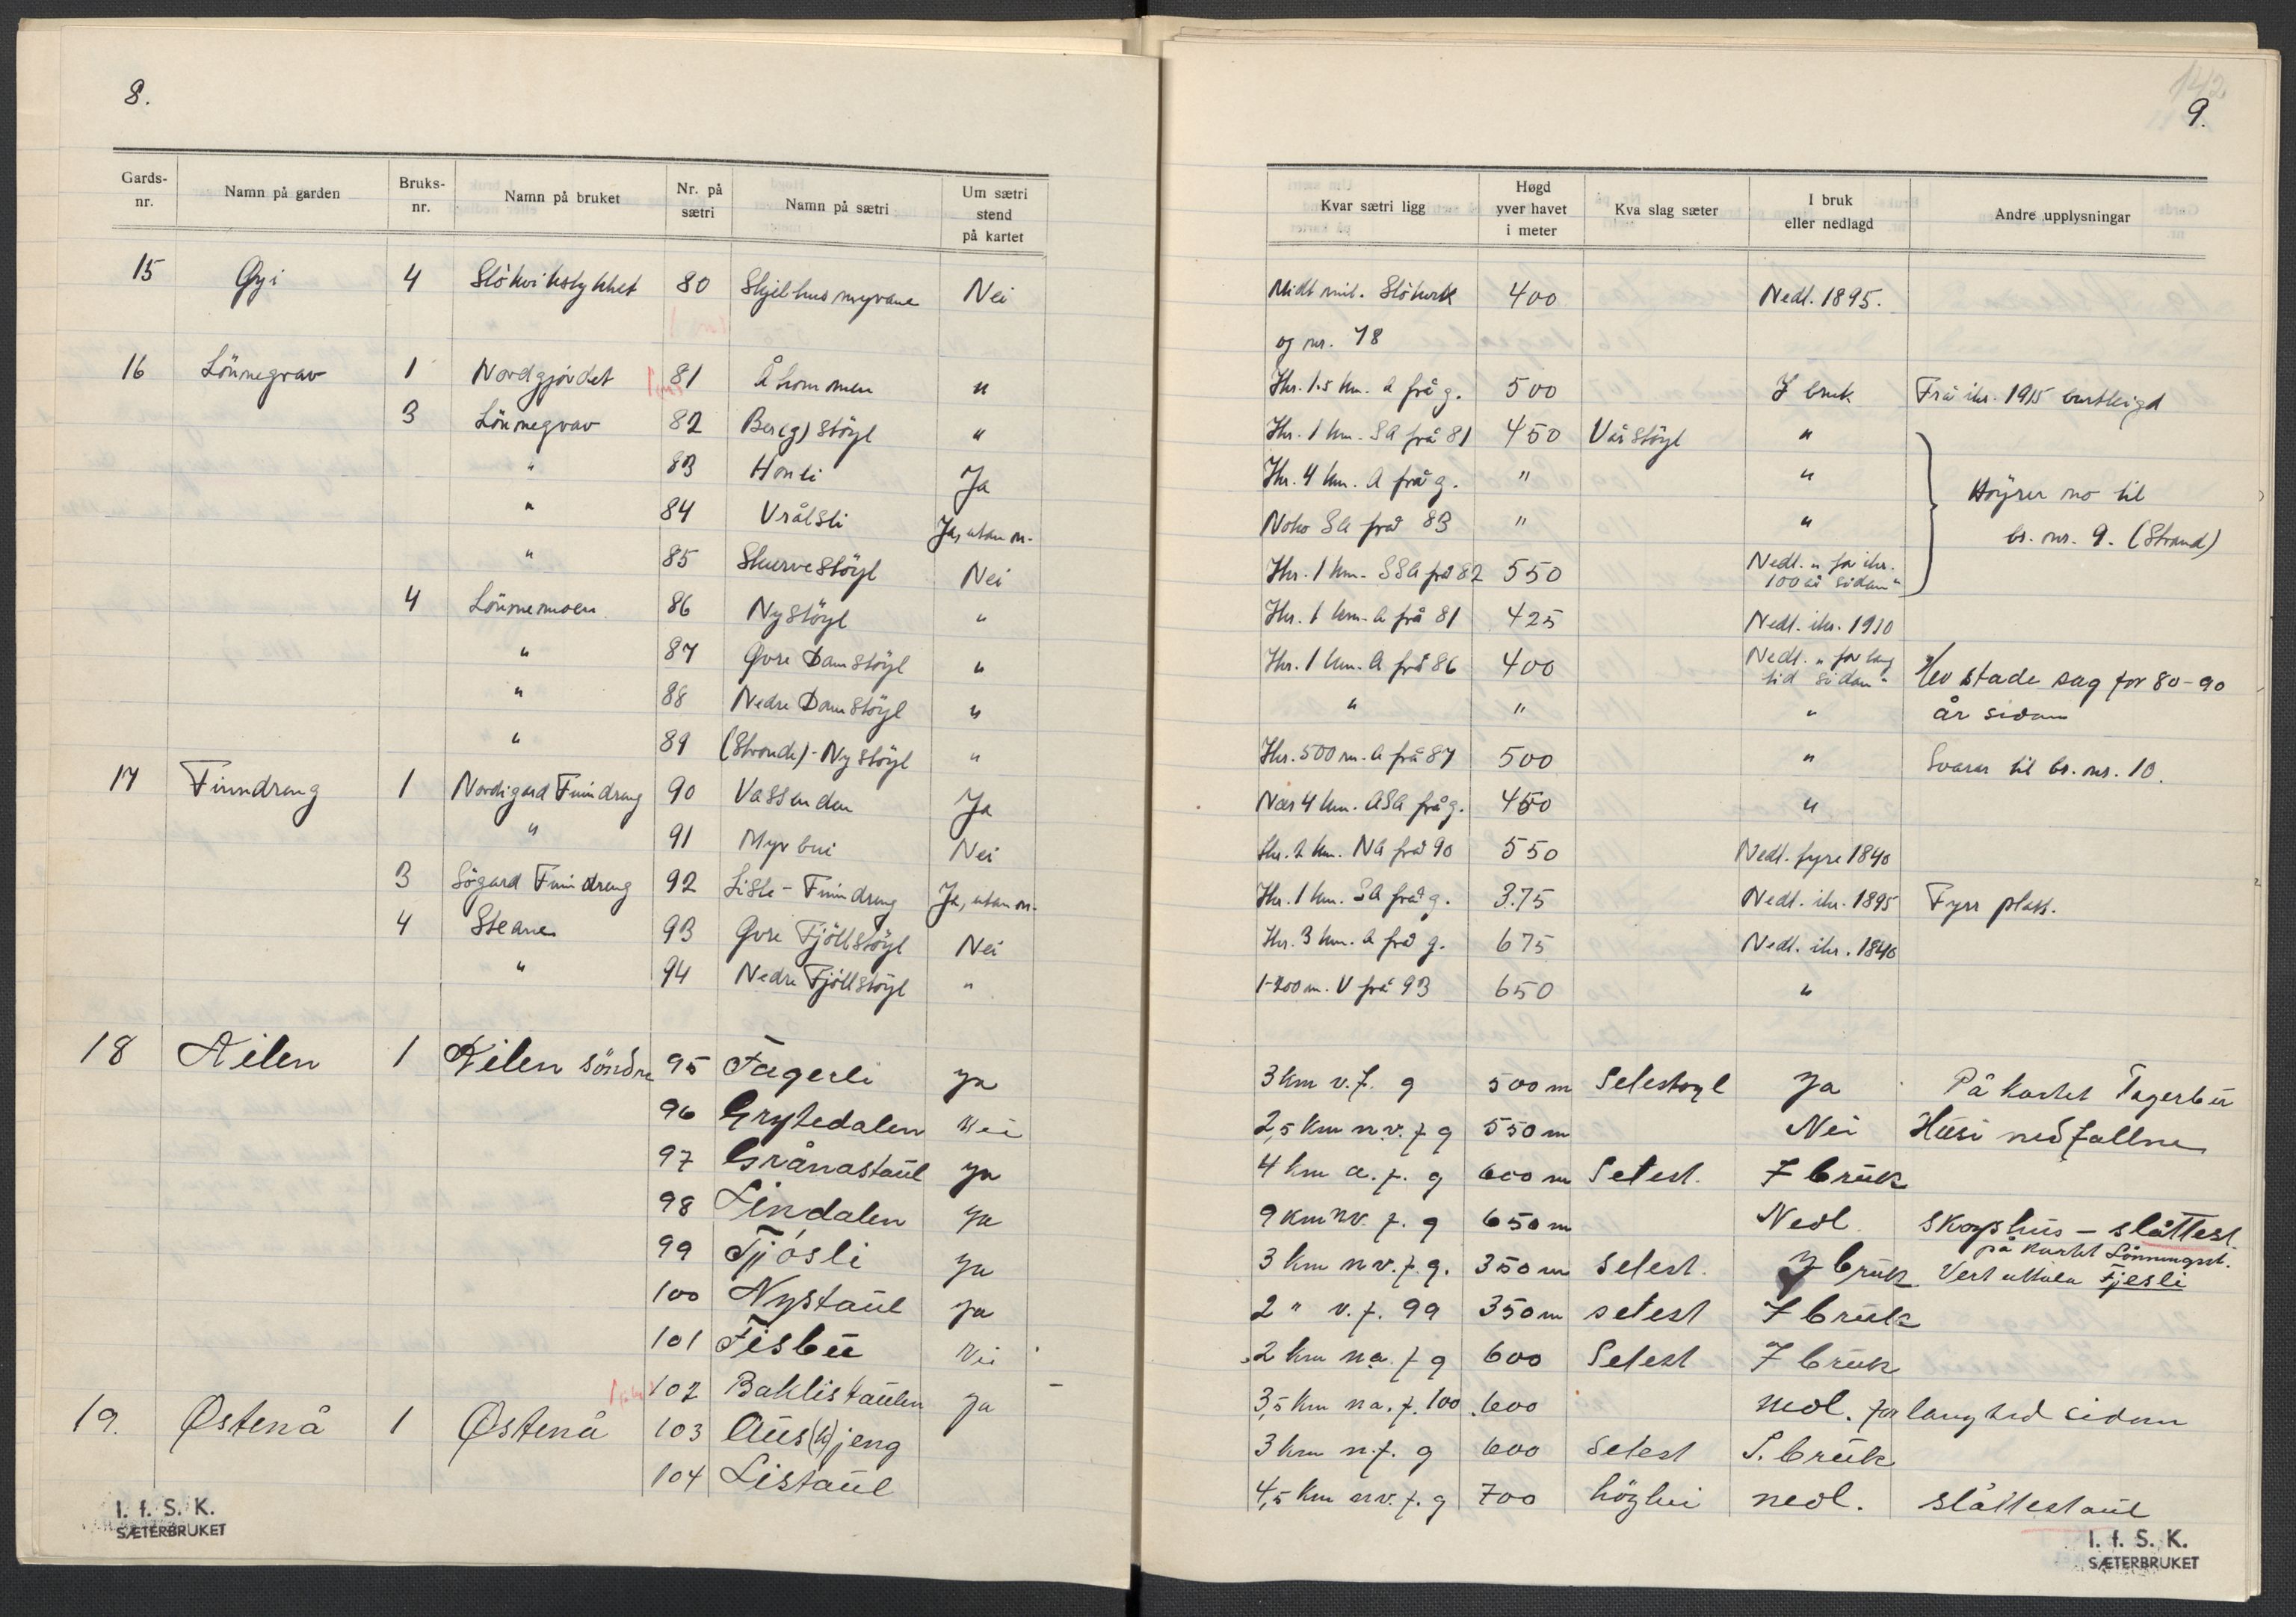 8.
Gards-nr. Namn på garden Bruks-nr. Namn på bruket Nr. på sætri Namn på sætri Um sætri stend på kartet
15 Gyi 4 Slökvikstykket 80 Skjelhusmyrane Nei
16 Lönnegrav 1 Nordgjordet 81 Åhommen "
3 Lönnegrav 82 Ber(g)støyl "
" 83 Honli Ja
" 84 Vrålsli Ja, utan n.
" 85 Skurvestöyl Nei
4 Lönnemoen 86 Nystöyl "
" 87 Øvre Damstöyl "
" 88 Nedre Damstöyl "
" 89 (Stronde)-Nystöyl "
17 Finndreng 1 Nordigard Finndreng 90 Vassenden Ja
" 91 Myrbui Nei
3 Sögard Finndreng 92 Lisle-Finndreng Ja, utan n.
4 Steane 93 Øvre Fjöllstöyl Nei
" 94 Nedre Fjöllstöyl "
18 Kilen 1 Kilen söndre 95 Fagerli ja
96 Grytedalen nei
97 Grånastaul ja
98 Lindalen ja
99 Fjósli ja
100 Nystaul ja
101 Fisbu nei
102 Baklistaulen ja
19. Østenå 1 Østenå 103 Aus(k)jeng
104 Listaul
I. f. S. K.
SÆTERBRUKET
142
9.
Kvar sætri ligg Høgd yver havet i meter Kva slag sæter I bruk eller nedlagd Andre upplysningar
Midt mil. Slökvik 400 Nedl. 1895.
og nr. 78
Ikr. 1.5 km. A frå g. 500 I bruk Frå ikr. 1915 burtleigd
Ikr. 1 km. SA frå 81 450 Vårstöyl "
Ikr. 4 km. A frå g. " " Höyrer no til
Noko SA frå 83 " " br. nr. 9. (Strand)
Ikr. 1 km. SSA frå 82 550 Nedl. "for ikr. 100 år sidan"
Ikr. 1 km. A frå 81 425 Nedl. ikr. 1910
Ikr. 1 km. A frå 86 400 Nedl. "for lang tid sidan" Hev stade sag for 80-90
" " " år sidan
Ikr. 500 m. A frå 87 500 " Svarar til br. nr. 10.
Nær 4 km. ASA frå g. 450 "
Ikr. 2 km. NA frå 90 550 Nedl. fyre 1840
Ikr. 1 km. SA frå g. 375 Nedl. ikr. 1895 Fyrr plass.
Ikr. 3 km. A frå g. 675 Nedl. ikr. 1840
1-200 m. V frå 93 650 "
3 km v. f. g 500 m Selestoyl ja På kartet Fagerbu
2,5 km n.v. f g 550 m Nei Husi nedfallne
4 km a. f. g 600 m Selest. I bruk
9 km nv. f. g 650 m Nedl. Skogshus - slåttest.
på kartet Lönningset.
3 km nv. f. g. 350 m Selest. I bruk Vert uttala Fjesli
2 " v. f. 99 350 m selest I bruk
2 km na. f g 600 Selest I bruk
3,5 km na. f. 100 600 nedl. for lang tid sidan
3 km n. f. g 600 Selest I. bruk
4,5 km nv. f. g 700 höyhui nedl. slåttestaul
I. f. S. K.
SÆTERBRUKET